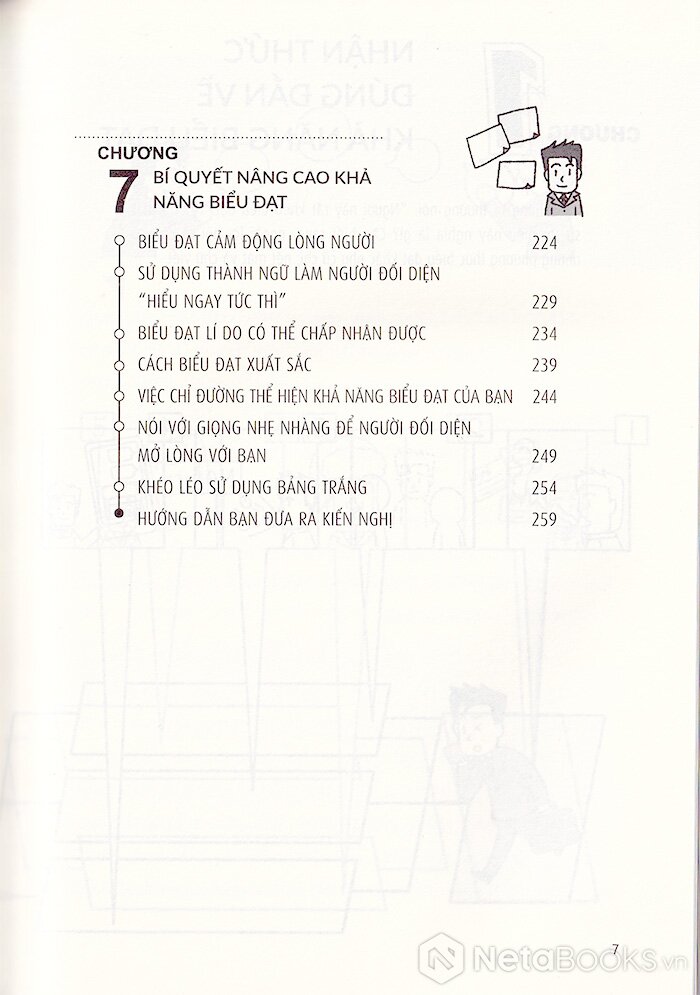 CHƯƠNG
7
BÍ QUYẾT NÂNG CAO KHẢ
NĂNG BIỂU ĐẠT
BIỂU ĐẠT CẢM ĐỘNG LÒNG NGƯỜI 224
SỬ DỤNG THÀNH NGỮ LÀM NGƯỜI ĐỐI DIỆN
“HIỂU NGAY TỨC THÌ” 229
BIỂU ĐẠT LÍ DO CÓ THỂ CHẤP NHẬN ĐƯỢC 234
CÁCH BIỂU ĐẠT XUẤT SẮC 239
VIỆC CHỈ ĐƯỜNG THỂ HIỆN KHẢ NĂNG BIỂU ĐẠT CỦA BẠN 244
NÓI VỚI GIỌNG NHẸ NHÀNG ĐỂ NGƯỜI ĐỐI DIỆN
MỞ LÒNG VỚI BẠN 249
KHÉO LÉO SỬ DỤNG BẢNG TRẮNG 254
HƯỚNG DẪN BẠN ĐƯA RA KIẾN NGHỊ 259
7
NETABOOKS.vn